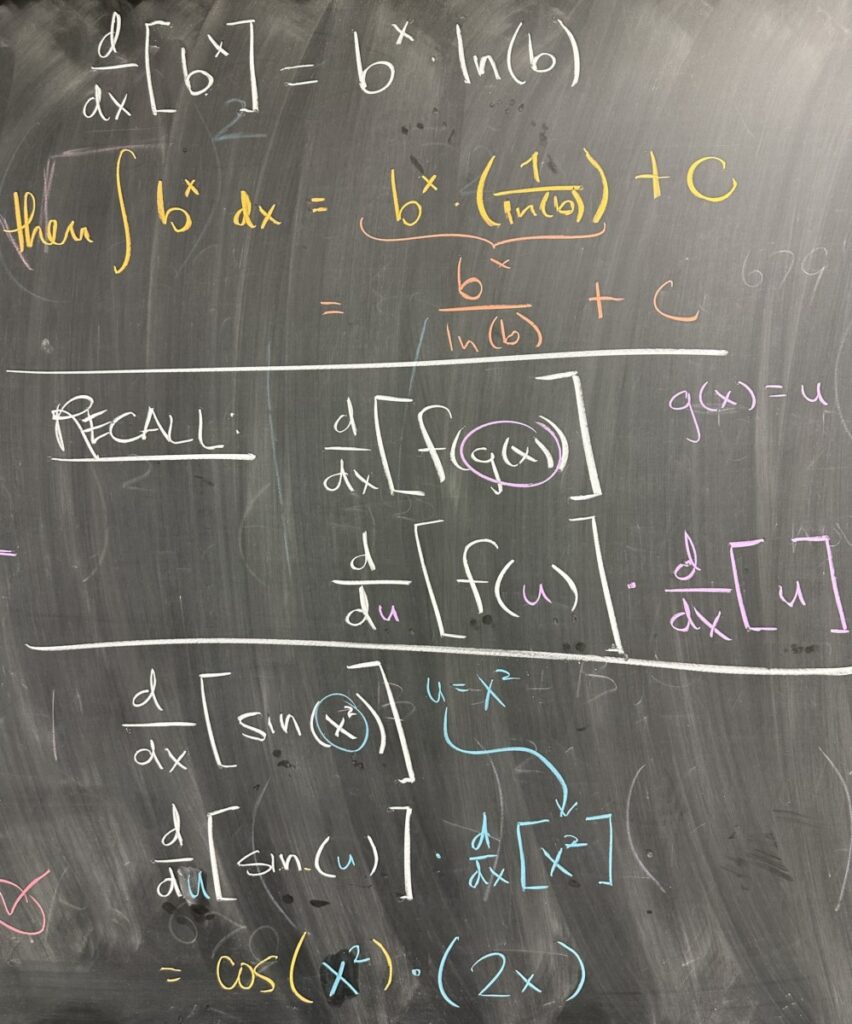 d/dx [b^x] = b^x · ln(b)
then ∫ b^x dx = b^x · (1/ln(b)) + C
= b^x/ln(b) + C
RECALL: d/dx [f(g(x))] g(x) = u
d/du [f(u)] · d/dx [u]
d/dx [sin(x²)] u = x²
d/du [sin(u)] · d/dx [x²]
= cos(x²) · (2x)